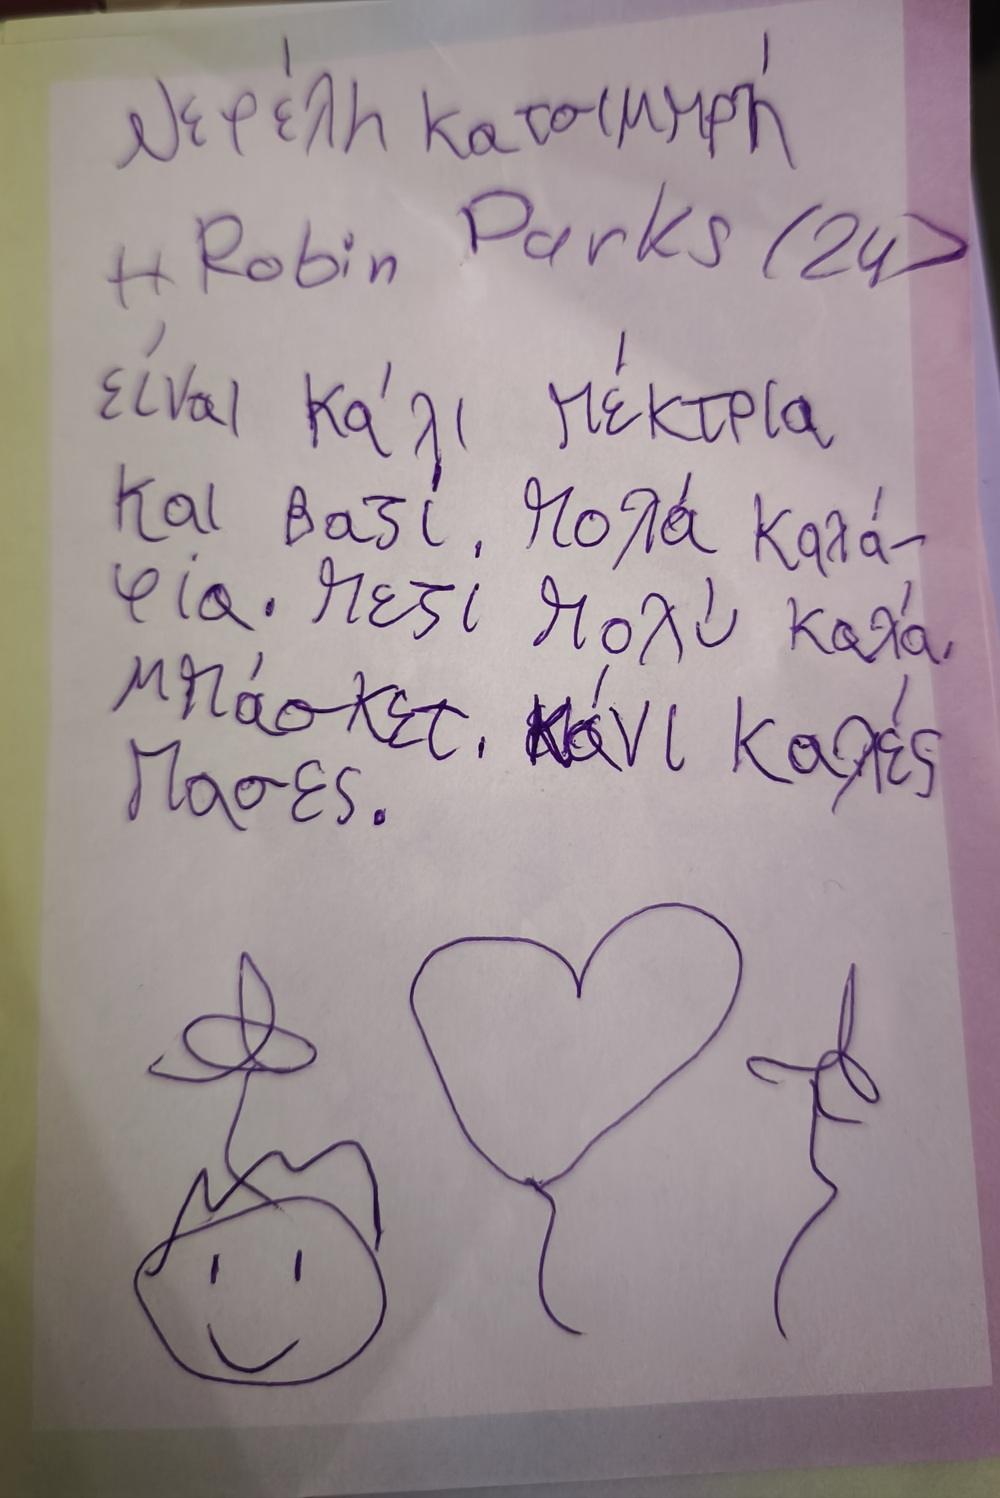 Νεφέλη Κατσιμηρή
Η Robin Parks (24)
είναι Κάλι πέκτρια
Και βαζί. πολά καλά-
φία. πεζί πολύ καλά.
μπάσκετ. Κάνι καλές
πασες.